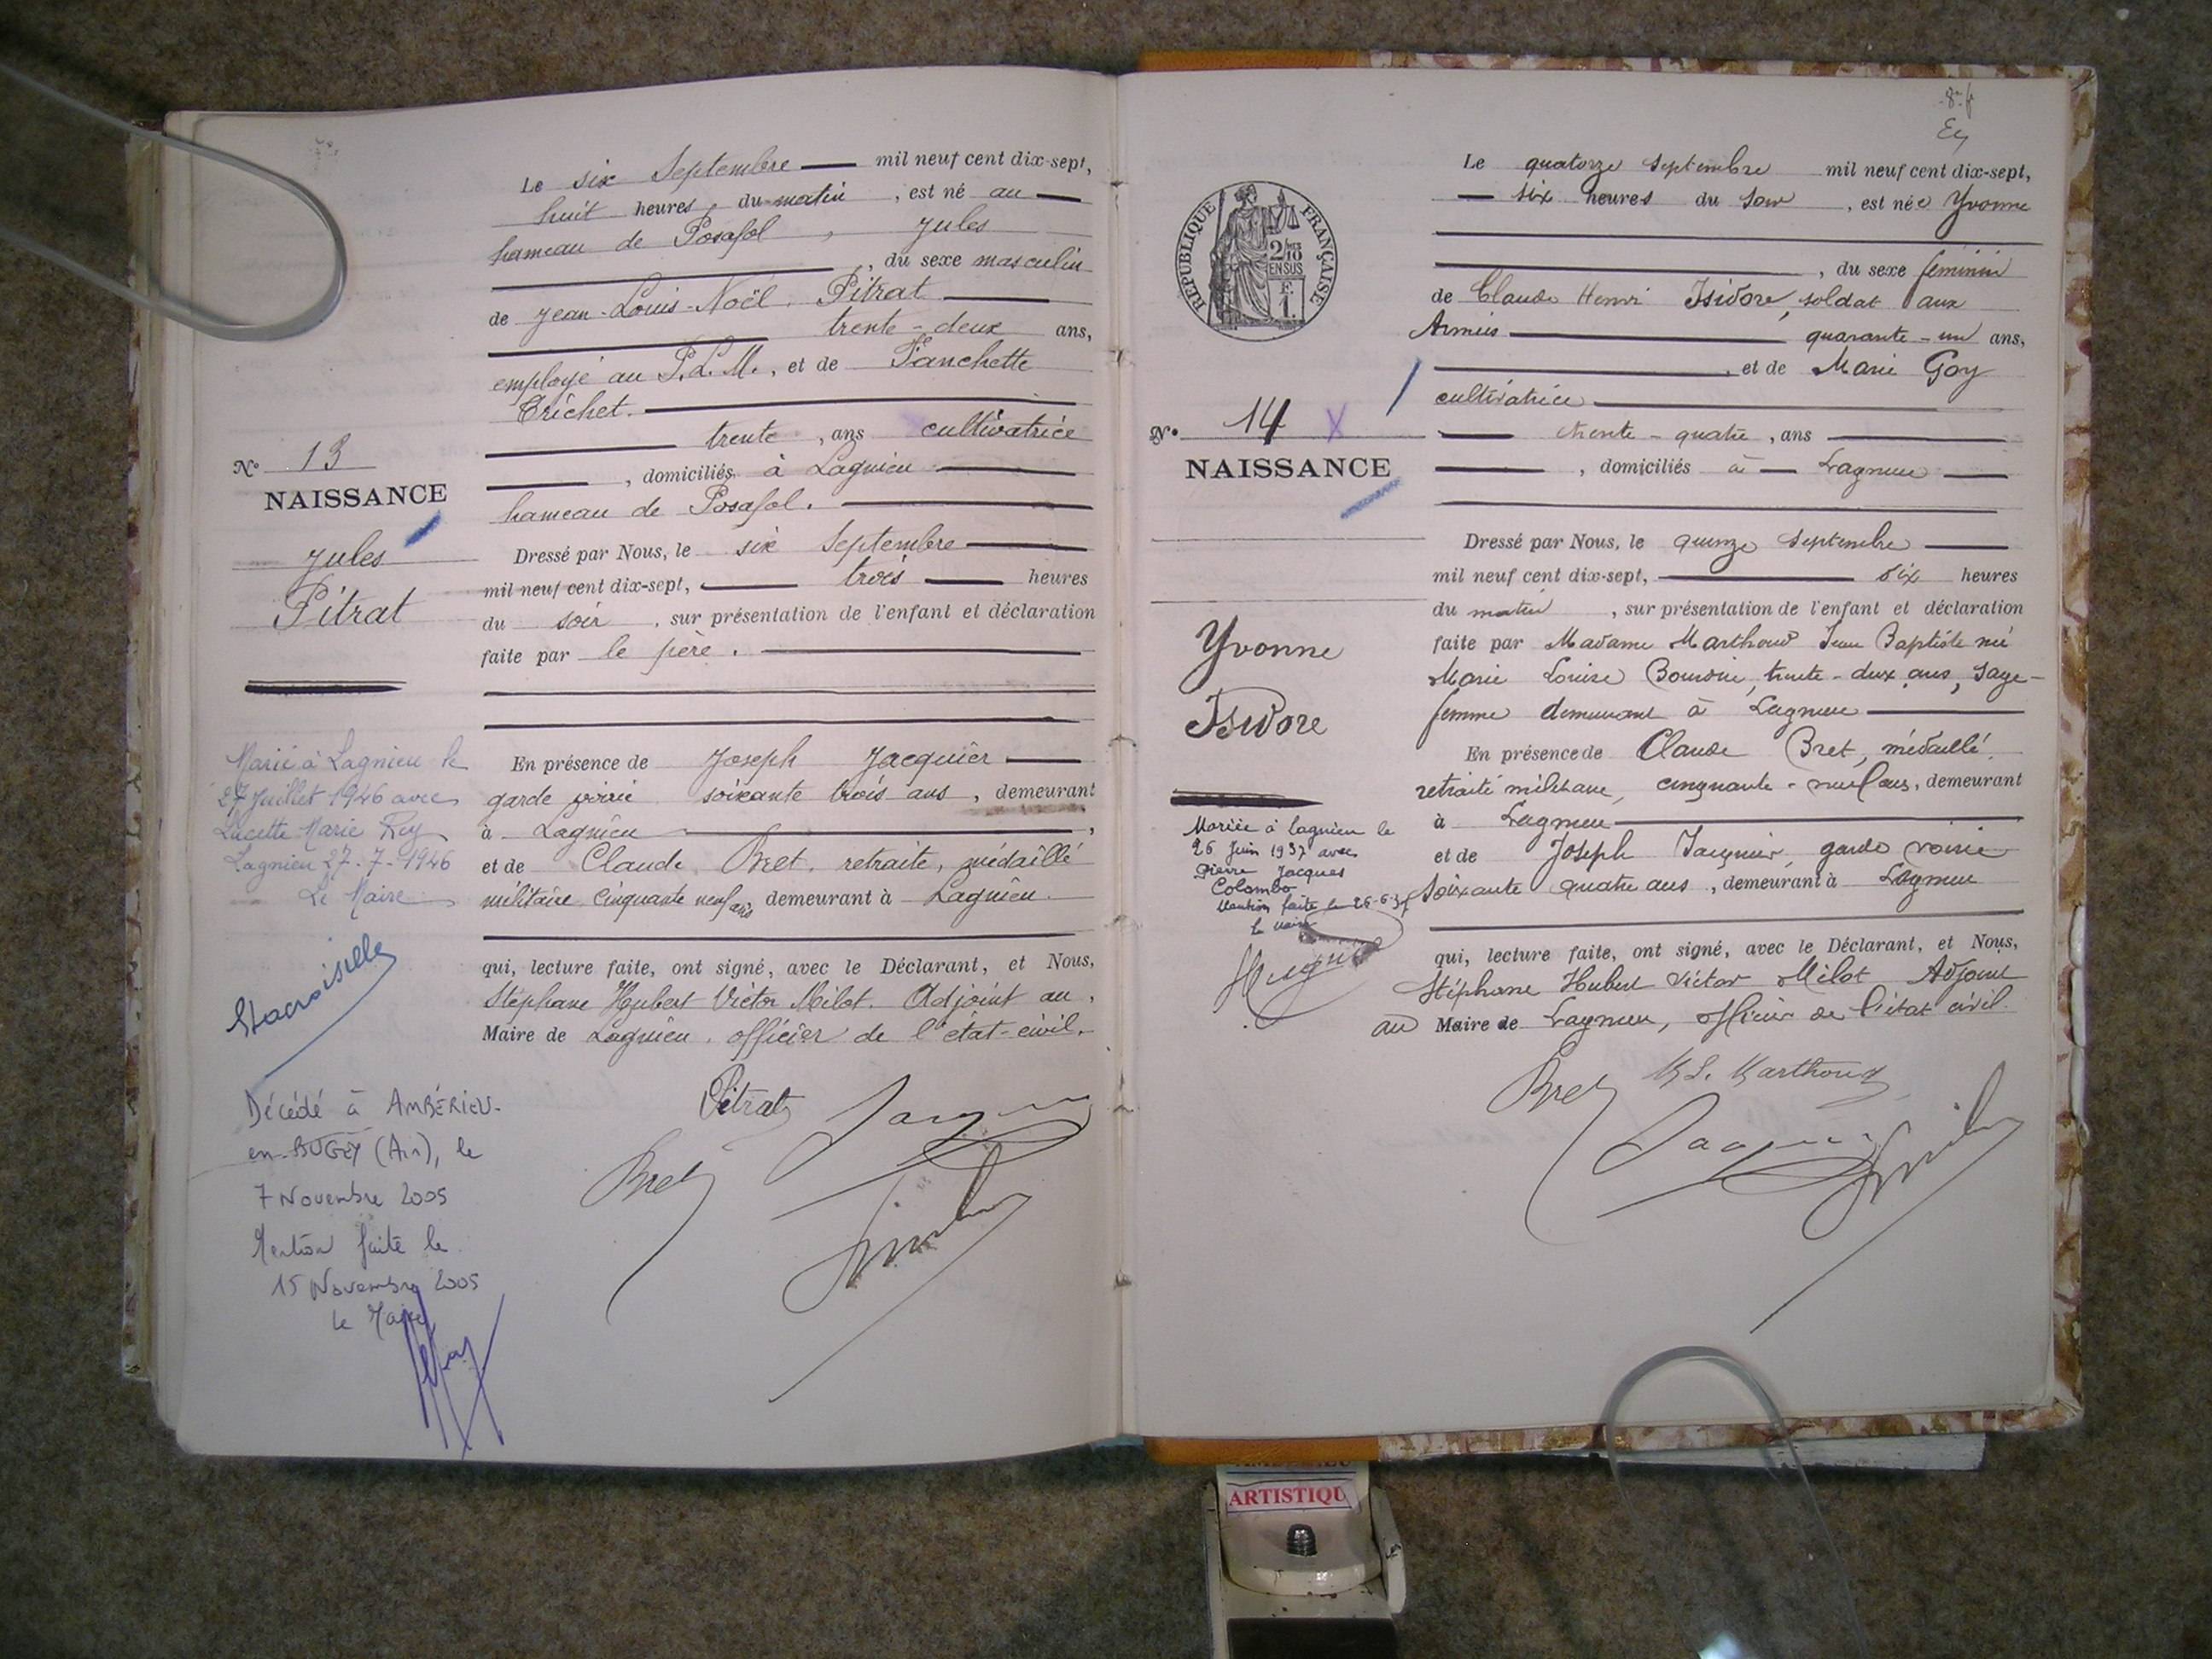 Le six Septembre mil neuf cent dix-sept,
huit heures du matin, est né au
hameau de Posafol, Jules
, du sexe masculin
de Jean-Louis-Noël Pitrat
trente-deux ans,
employé au P.L.M., et de Fanchette
Trichet.
trente, ans cultivatrice
, domiciliés à Lagnieu
hameau de Posafol.
N° 13
NAISSANCE
Jules
Pitrat
Dressé par Nous, le six Septembre
mil neuf cent dix-sept, trois heures
du soir, sur présentation de l'enfant et déclaration
faite par le père.
En présence de Joseph Jacquier
garde voirie soixante trois ans, demeurant
à Lagnieu,
et de Claude Bret, retraité, médaillé
militaire cinquante neuf ans demeurant à Lagnieu.
qui, lecture faite, ont signé, avec le Déclarant, et Nous,
Stéphane Hubert Victor Milot. Adjoint au,
Maire de Lagnieu. officier de l'état-civil.
Pitrat
Bret
Marié à Lagnieu le
27 Juillet 1946 avec
Lucette Marie Rey
Lagnieu 27-7-1946
Le Maire
Décédé à AMBÉRIEU-
en-BUGEY (Ain), le
7 Novembre 2005
Mention faite le
15 Novembre 2005
Le Maire
Le quatorze septembre mil neuf cent dix-sept,
six heures du soir, est née Yvonne
, du sexe féminin
de Claude Henri Isidore, soldat aux
Armées quarante-un ans,
, et de Marie Goy
cultivatrice
trente-quatre, ans
, domiciliés à Lagnieu
RÉPUBLIQUE FRANÇAISE
2/10
EN SUS
F.
1.
N° 14 X
NAISSANCE
Yvonne
Isidore
Dressé par Nous, le quinze septembre
mil neuf cent dix-sept, six heures
du matin, sur présentation de l'enfant et déclaration
faite par Madame Marthoud Jean Baptiste née
Marie Louise trente-deux ans, sage-
femme demeurant à Lagnieu
En présence de Claude Bret, médaillé
retraité militaire, cinquante-neuf ans, demeurant
à Lagnieu
et de Joseph Jacquier, garde voirie
soixante quatre ans, demeurant à Lagnieu
qui, lecture faite, ont signé, avec le Déclarant, et Nous,
Stéphane Hubert Victor Milot Adjoint
au Maire de Lagnieu, officier de l'état civil.
Bret M L. Marthoud
Mariée à Lagnieu le
26 Juin 1937 avec
Pierre Jacques
Colombo
Mention faite le 26-6-37
le maire
ARTISTIQU